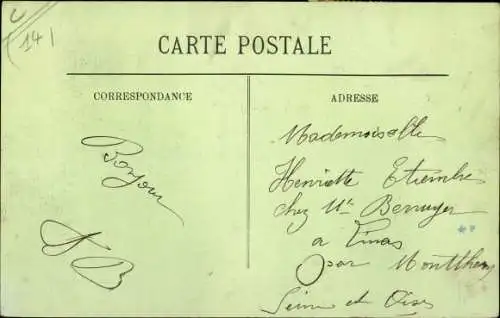 14
CARTE POSTALE
CORRESPONDANCE
ADRESSE
Bonjour
B
Mademoiselle
Henriette
chez Mr Berruyer
a Linas
par Montlhery
Seine et Oise